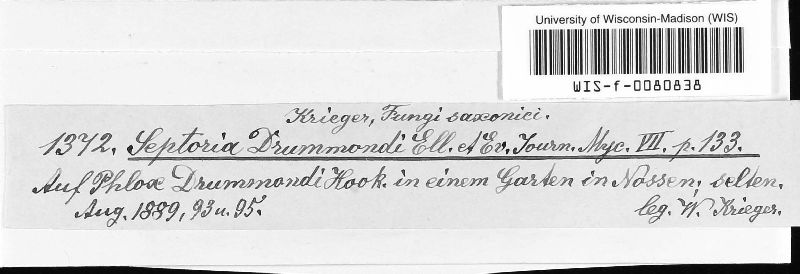 University of Wisconsin-Madison (WIS)
WIS-f-0080838
Krieger, Fungi saxonici.
1372. Septoria Drummondi Ell. et Ev. Journ. Myc. VII. p. 133.
Auf Phlox Drummondi Hook. in einem Garten in Nossen; selten.
Aug. 1889, 93 u. 95.
leg. W. Krieger.